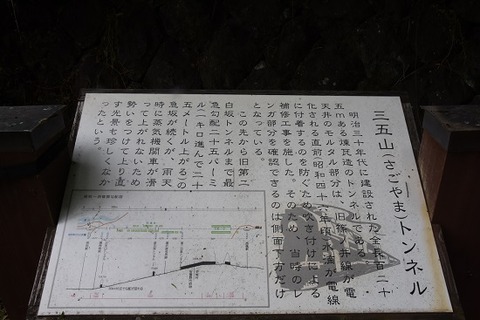 三五山(さごやま)トンネル
明治三十年代に建設された全長百二十
五mある煉瓦造のトンネルである。
天井のモルタル部分は、旧篠ノ井線が電
化される直前昭和四十八年頃水滴が電線
に付着するのを防ぐため吹き付けによる
補修工事を施した。そのため、当時のレ
ンガ部分を確認できるのは側面下方だけ
となっている。
この先から旧第二
白坂トンネルまで最
急勾配二十五パーミ
ル(一キロ進んで二十
五メートル上がる)の
急坂が続くが、雨天
時に蒸気機関車が滑
って上がれないため
勢いをつけて上り直
す光景も珍しくなか
ったという。